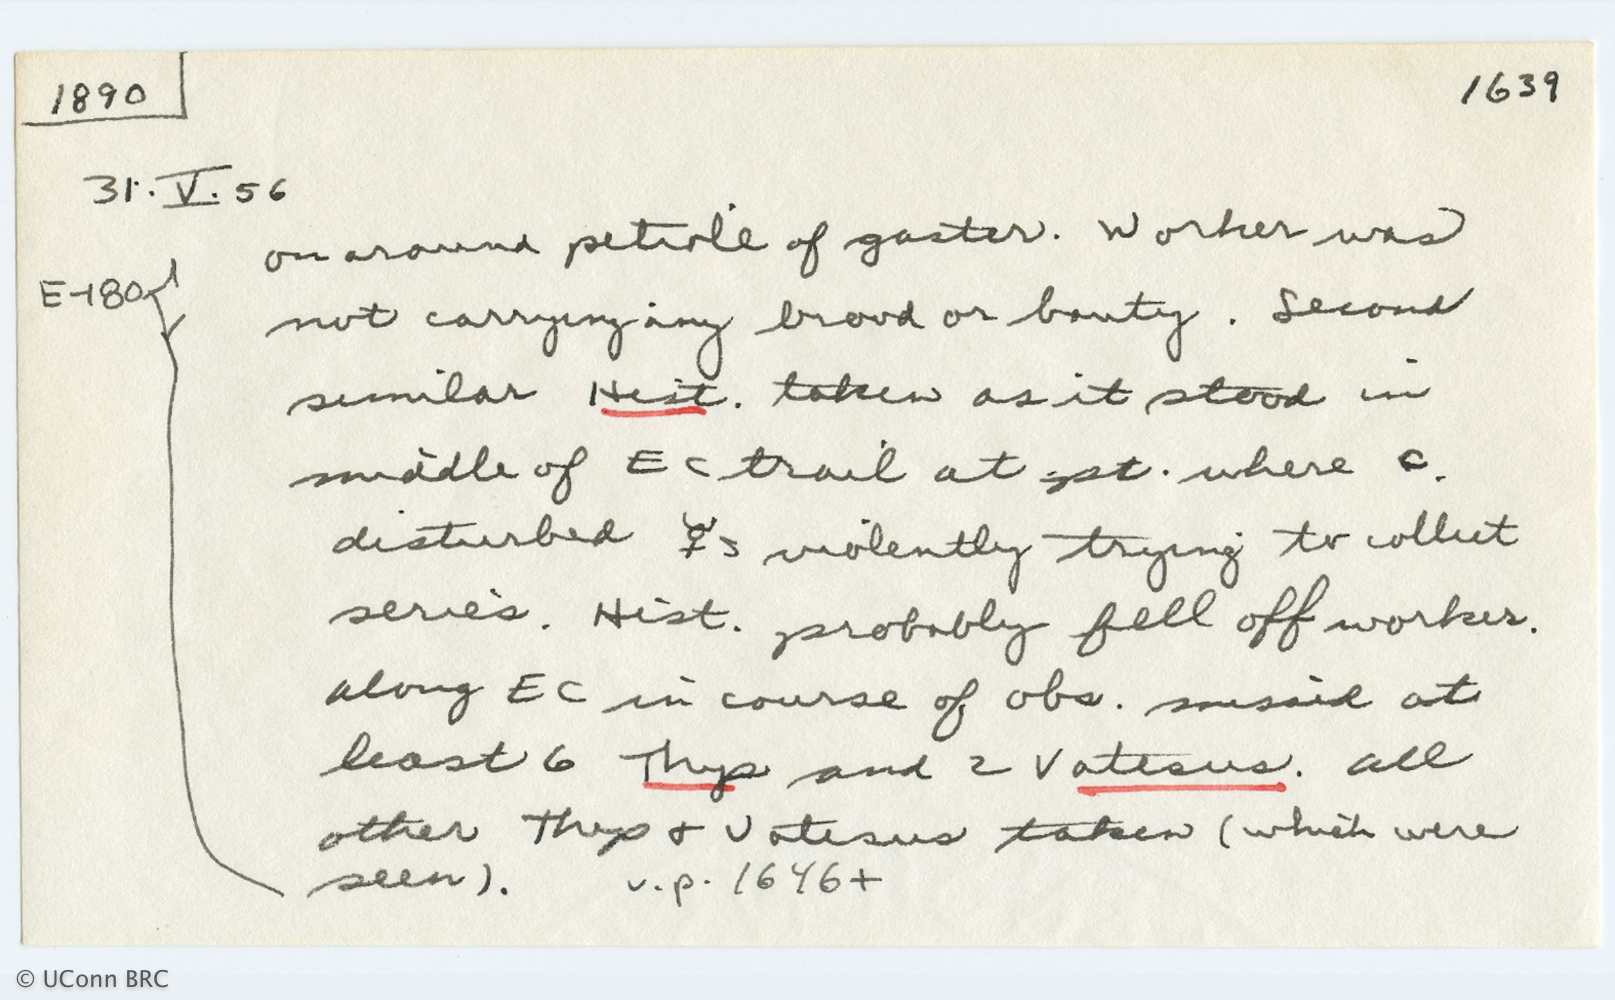 1890
1639
31.V.56
E-180
on around petiole of gaster. Worker was
not carrying any brood or booty. Second
similar Hist. taken as it stood in
middle of EC trail at pt. where C.
disturbed ☿s violently trying to collect
series. Hist. probably fell off worker.
along EC in course of obs. missed at
least 6 Thyp and 2 Vatesus. all
other Thyp + Vatesus taken (which were
seen). v.p. 1646+
© UConn BRC